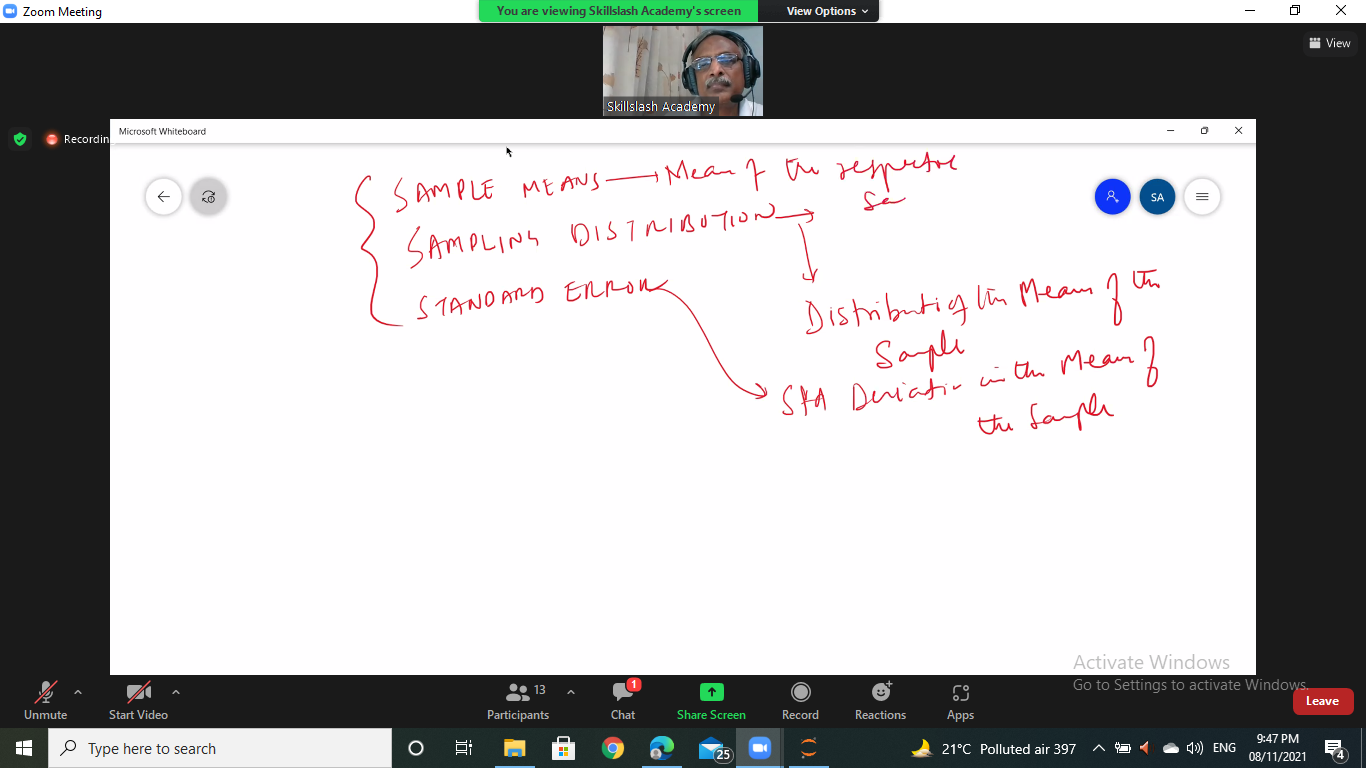 Zoom Meeting
You are viewing Skillslash Academy's screen
View Options
View
Skillslash Academy
Recording
Microsoft Whiteboard
SAMPLE MEANS → Mean of the respective
Sa
SA
SAMPLING DISTRIBUTION →
STANDARD ERROR
Distributi of the Mean of the
Sample
Std Deviation in the Mean of
the Sample
Activate Windows
Go to Settings to activate Windows.
Unmute
Start Video
13
Participants
1
Chat
Share Screen
Record
Reactions
Apps
Leave
Type here to search
25
21°C Polluted air 397
ENG
9:47 PM
08/11/2021
4